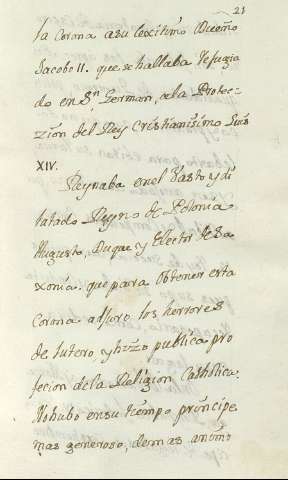 21
la Corona asu lexitimo Dueño
Jacobo II. que se hallaba refugia
do en Sn. German, ala Protec-
zion del Rey Cristianisimo Luis
XIV.
Reynaba en el Vasto y di
latado Reyno de Polonia
Augusto, Duque y Elector de Sa
xonia. que para obtener esta
Corona abjuro los herrores
de lutero, y hizo publica pro
fecion dela Religion Catholica.
No hubo en su tiempo principe
mas generoso, de mas animo